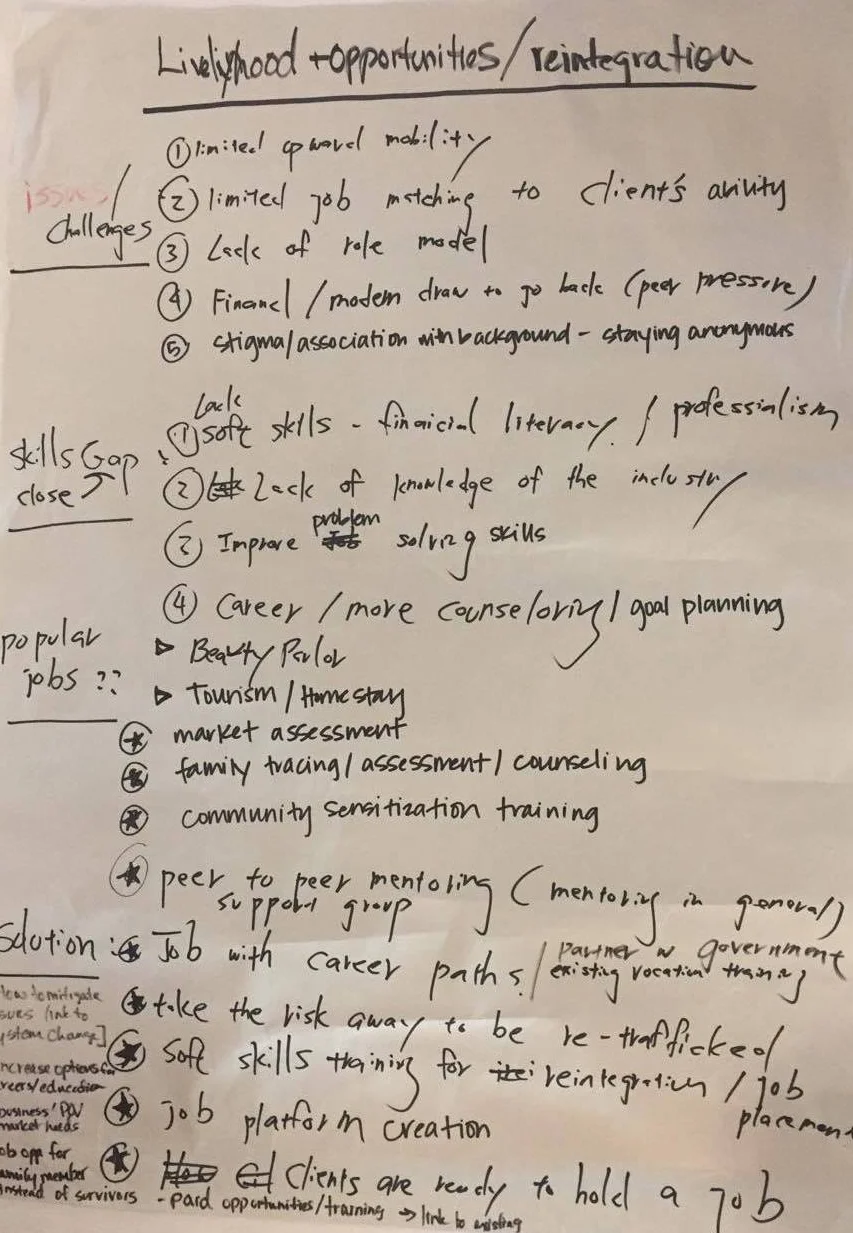 Livelyhood + opportunities / reintegration
issues /
challenges
① limited upward mobility
② limited job matching to client's avility
③ Lack of role model
④ Financl / modern draw to go back (peer pressure)
⑤ stigma/association with background - staying anonymous
Skills Gap :
close
Lack
① soft skills - finaicial literacy / professialism
② Lack of knowledge of the industry
③ Improve problem solving skills
④ Career / more counseloring / goal planning
popular
jobs ??
▷ Beauty Parlor
▷ Tourism / Homestay
★ market assessment
★ family tracing / assessment / counseling
★ community sensitization training
★ peer to peer mentoring (mentoring in general)
support group
Solution :
★ Job with career paths / partner w government
existing vocation training
★ take the risk away to be re-trafficked
★ Soft skills training for reintegration / job
placement
★ job platform creation
★ Clients are ready to hold a job
- paid opportunities/training → link to existing
how to mitigate
issues [link to
system change]
increase options for
careers/education
business/
market needs
job opp for
family member
instead of survivors